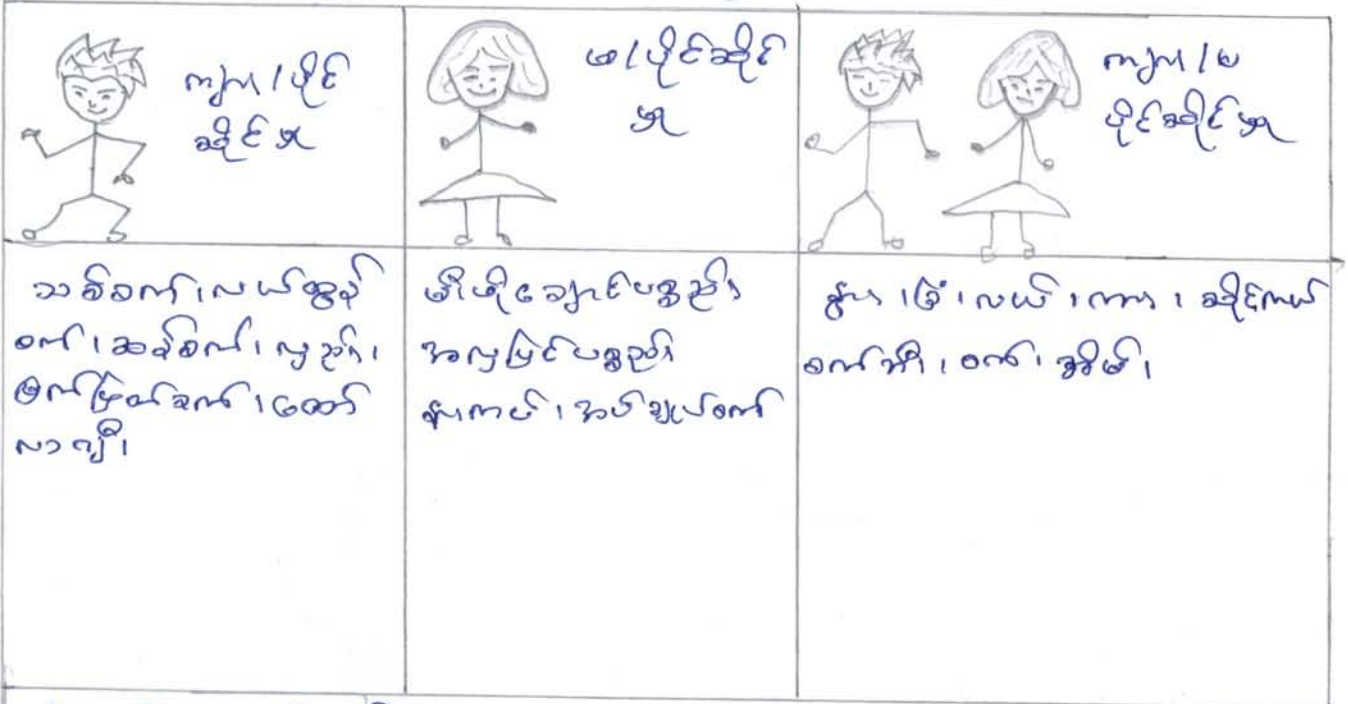 ကျား / ပိုင်
ဆိုင်မှု
မ / ပိုင်ဆိုင်
မှု
ကျား / မ
ပိုင်ဆိုင်မှု
သစ်စက်၊ လယ်ထွန်
စက်၊ ဆန်စက်၊ လှည်း၊
မြက်ဖြတ်စက်၊ ထော်
လာဂျီ၊
မီးဖိုချောင်ပစ္စည်း
အလှပြင်ပစ္စည်း
အပ်ချုပ်စက်
နွား၊ ခြံ၊ လယ်၊ ကား၊ ဆိုင်ကယ်
စက်ဘီး၊ ဝက်၊ အိမ်၊